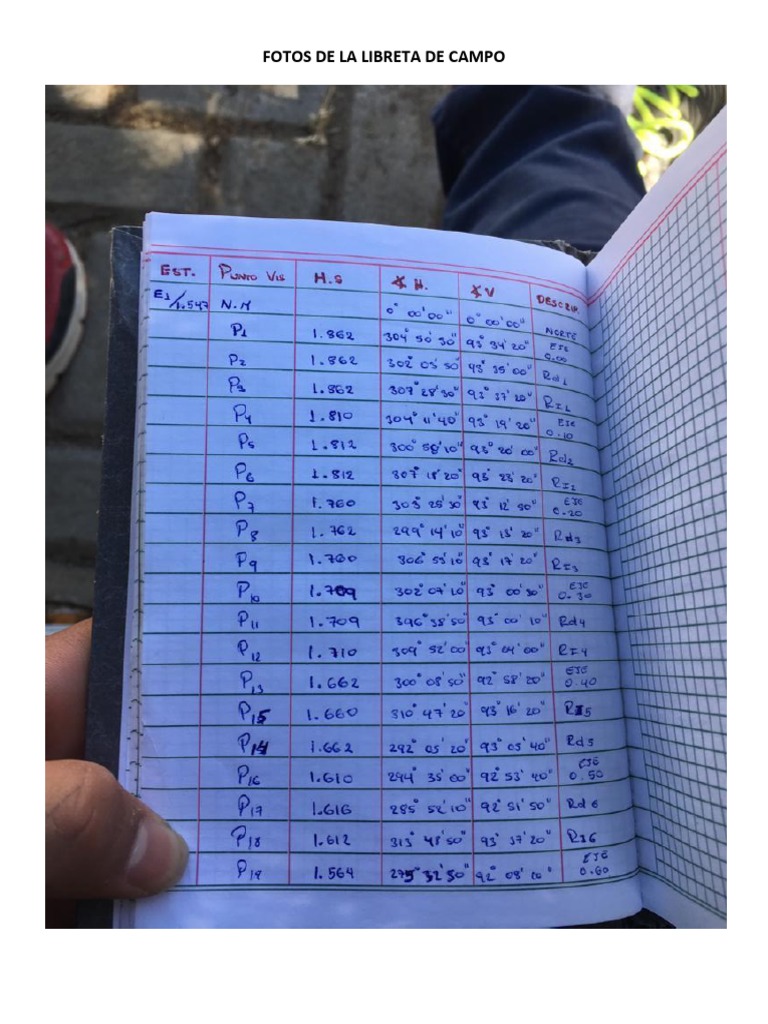 FOTOS DE LA LIBRETA DE CAMPO
EST. PUNTO VIS H.S ∡ H. ∡ V DESCRIP.
E1/1.547 N.M 0° 00' 00" 0° 00' 00" NORTE
P1 1.862 304° 50' 30" 93° 34' 20" EJE 0.00
P2 1.862 302° 05' 50" 93° 35' 00" Rd1
P3 1.862 307° 28' 30" 93° 37' 20" RI1
P4 1.810 304° 11' 40" 93° 19' 20" EJE 0.10
P5 1.812 300° 58' 10" 93° 20' 00" Rd2
P6 1.812 307° 18' 20" 93° 23' 20" RI2
P7 1.760 303° 25' 30" 93° 12' 50" EJE 0.20
P8 1.762 299° 14' 10" 93° 13' 20" Rd3
P9 1.760 306° 53' 10" 93° 17' 20" RI3
P10 1.709 302° 07' 10" 93° 00' 30" EJE 0.30
P11 1.709 396° 38' 50" 93° 00' 10" Rd4
P12 1.710 309° 52' 00" 93° 04' 00" RI4
P13 1.662 300° 08' 50" 92° 58' 20" EJE 0.40
P15 1.660 310° 47' 20" 93° 16' 20" RI5
P14 1.662 292° 05' 20" 93° 05' 40" Rd5
P16 1.610 294° 35' 00" 92° 53' 40" EJE 0.50
P17 1.616 285° 52' 10" 92° 51' 50" Rd6
P18 1.612 313° 48' 50" 93° 37' 20" RI6
P19 1.564 275° 32' 50" 92° 08' 20" EJE 0.60